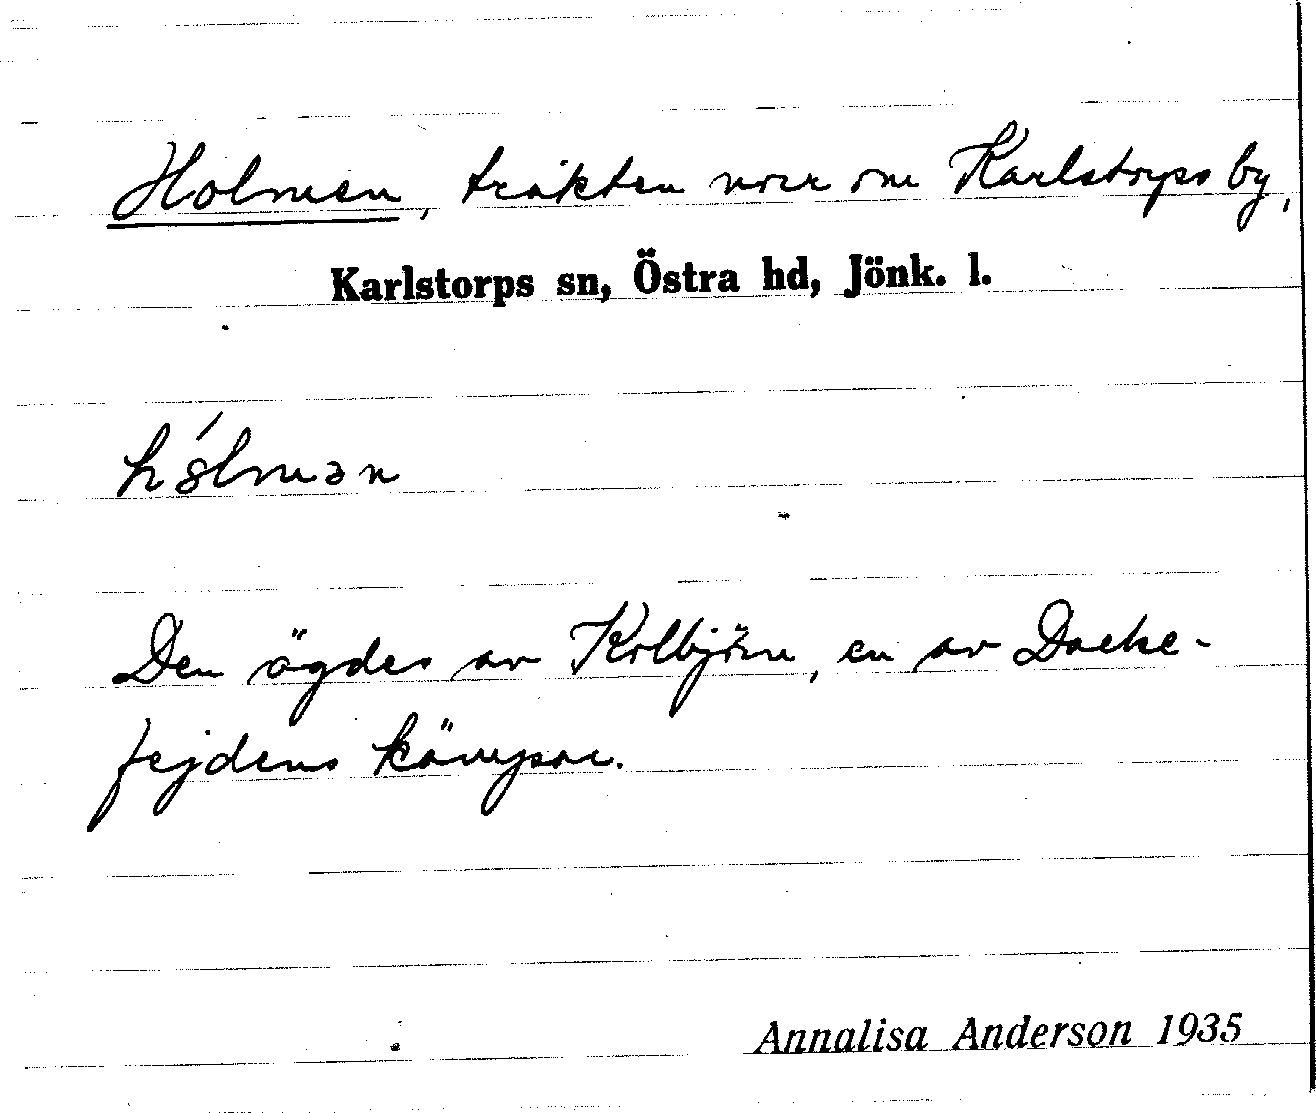 Holmen, trakten norr om Karlstorps by,
Karlstorps sn, Östra hd, Jönk. l.
hólmən
Den ägdes av Kolbjörn, en av Dacke-
fejdens kämpar.
Annalisa Anderson 1935